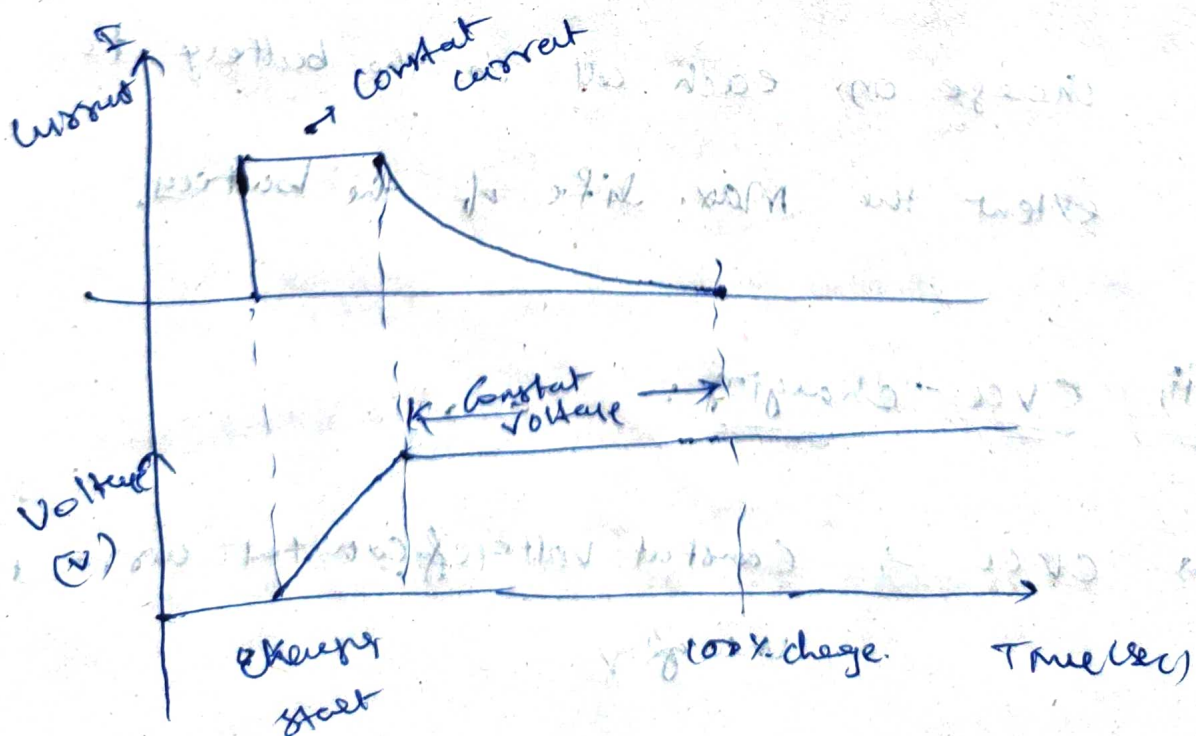 I
Current
→ Constat
current
K Constat →
Voltage
Voltage
(V)
start
100% chage.
Time (sec)